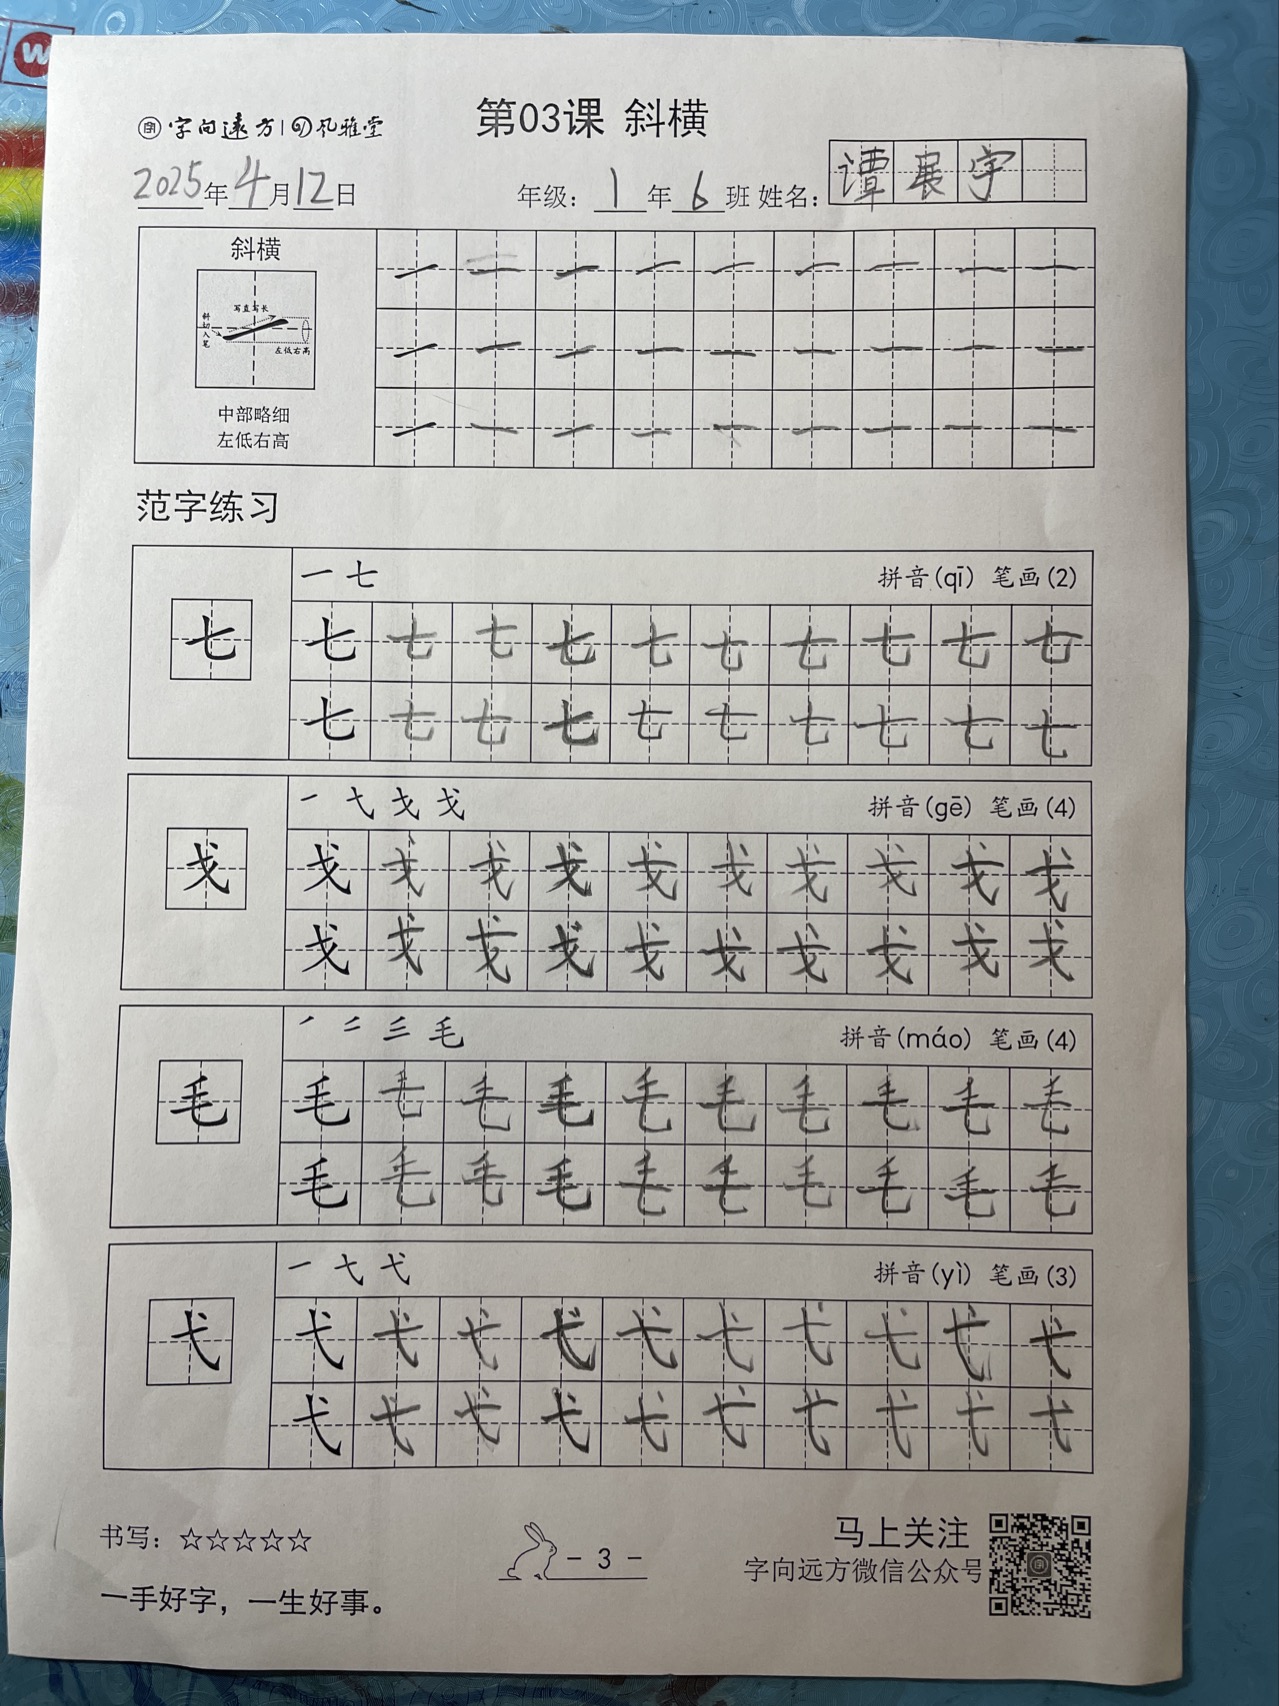 W
字向远方 风雅堂
第03课 斜横
2025年4月12日 年级：1年6班 姓名：谭展宇
斜横
写直写长
斜切入笔
左低右高
中部略细
左低右高
范字练习
一 七 拼音(qī) 笔画(2)
七 七 七 七 七 七 七 七 七 七 七
七 七 七 七 七 七 七 七 七 七
一 弋 戈 戈 拼音(gē) 笔画(4)
戈 戈 戈 戈 戈 戈 戈 戈 戈 戈 戈
戈 戈 戈 戈 戈 戈 戈 戈 戈 戈
毛 拼音(máo) 笔画(4)
毛 毛 毛 毛 毛 毛 毛 毛 毛 毛 毛
毛 毛 毛 毛 毛 毛 毛 毛 毛 毛
一 弋 弋 拼音(yì) 笔画(3)
弋 弋 弋 弋 弋 弋 弋 弋 弋 弋 弋
弋 弋 弋 弋 弋 弋 弋 弋 弋 弋
书写：☆☆☆☆☆
一手好字，一生好事。
- 3 -
马上关注
字向远方微信公众号